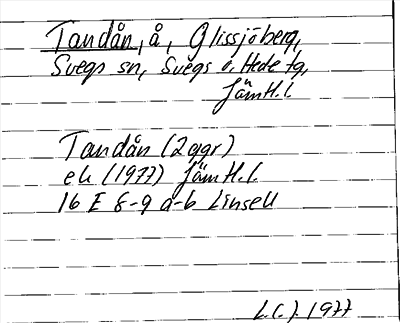 Tandån, å, Glissjöberg,
Svegs sn, Svegs o. Hede tg,
Jämtl. l
Tandån (2 ggr)
ek (1977) Jämtl. l.
16 E 8-9 a-b Linsell
L.C.J. 1977